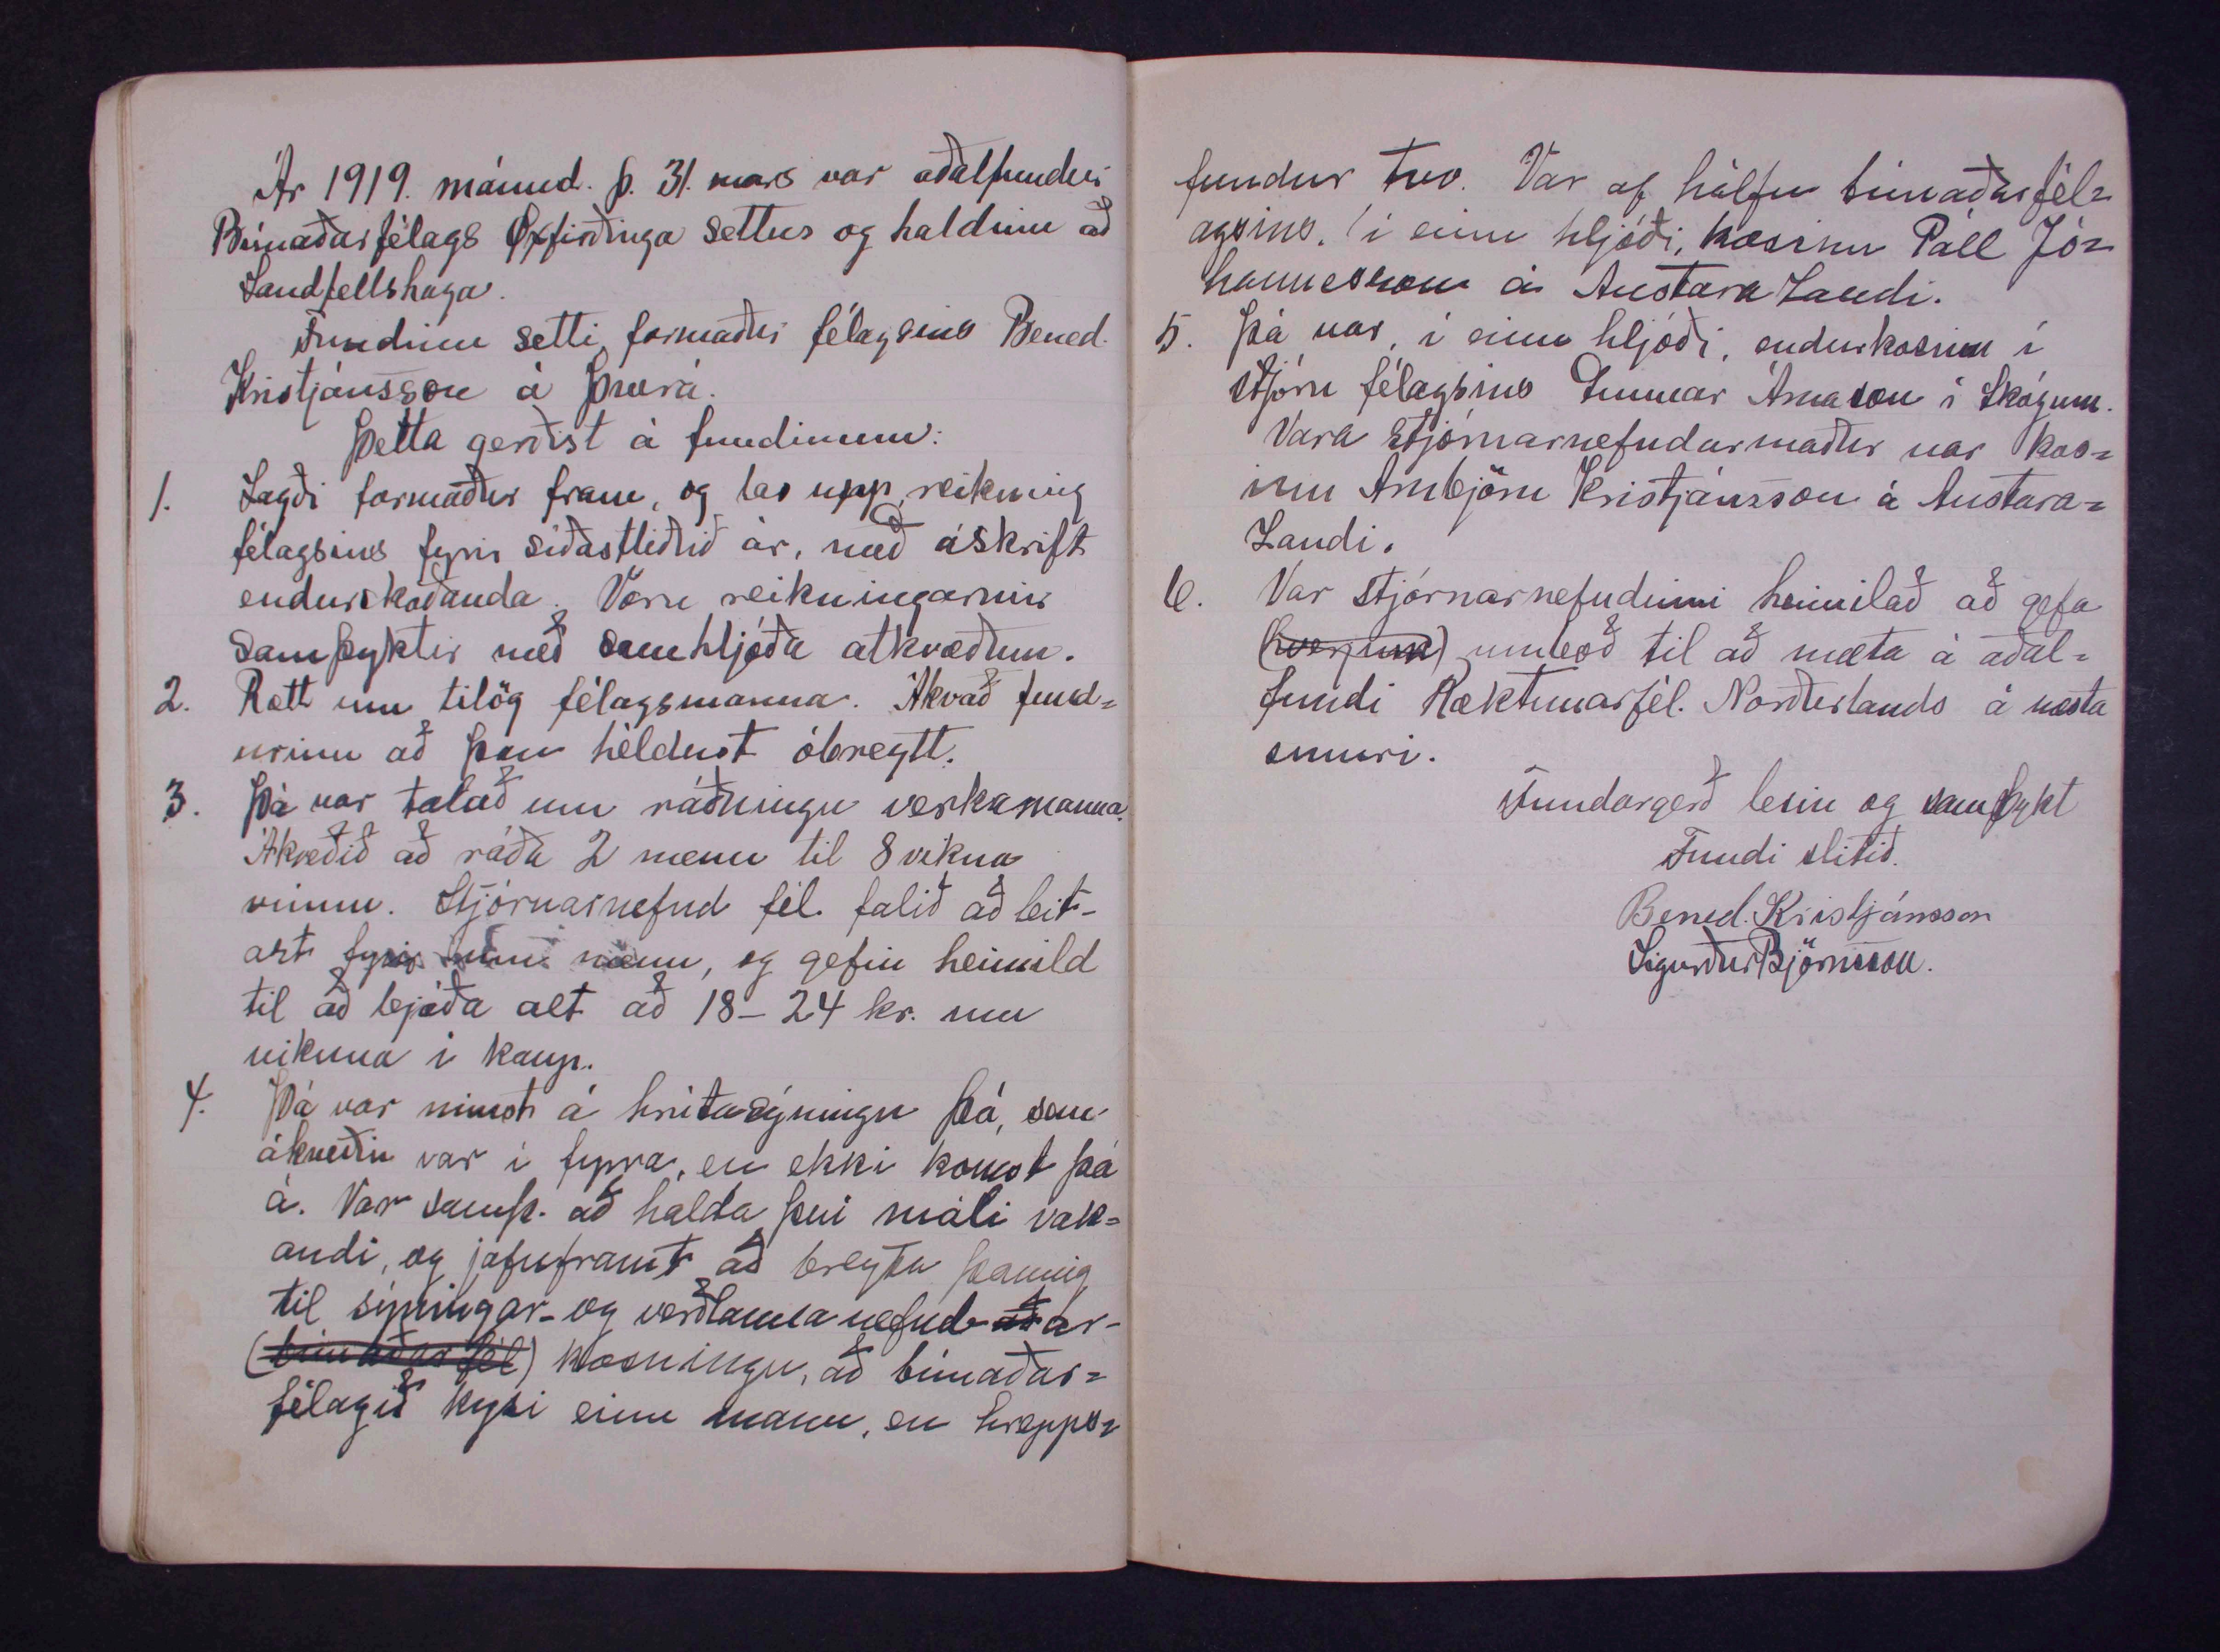 Ár 1919. mánud. þ. 31. mars var aðalfundur
Búnaðarfélags Øxfirðinga settur og haldinn að
Sandfellshaga.
Fundinn setti, formaður félagsins Bened.
Kristjánsson á Þverá.
Þetta gerðist á fundinum:
1. Lagði formaður fram, og las upp, reikning
félagsins fyrir síðastliðið ár, með áskrift
endurskoðanda. Voru reikningarnir
samþyktir með samhljóða atkvæðum.
2. Rætt um tilög félagsmanna. Ákvað fund=
urinn að þau héldust óbreytt.
3. Þá var talað um ráðningu verkamanna.
Ákveðið að ráða 2 menn til 8 vikna
vinnu. Stjórnarnefnd fél. falið að leit-
ast fyrir um menn, og gefin heimild
til að bjóða alt að 18 - 24 kr. um
vikuna í kaup.
4. Þá var minst á hrútasýningu þá, sem
ákveðin var í fyrra, en ekki komst þá
á. Var samþ. að halda því máli vak=
andi, og jafnframt að breyta þannig
til sýningar- og verðlaunanefndar-
(búnaðarfél) kosningu, að búnaðar=
félagið kysi einn mann, en hrepps=
fundur tvo. Var af hálfu búnaðarfél=
agsins, í einu hljóði, kosinn Páll Jó=
hannesson á Austara Landi.
5. Þá var, í einu hljóði, endurkosinn í
stjórn félagsins Gunnar Árnason í Skógum.
Vara stjórnarnefndarmaður var kos=
inn Arnbjörn Kristjánsson á Austara=
Landi.
6. Var stjórnarnefndinni heimilað að gefa
(hverjum) umboð til að mæta á aðal=
fundi Ræktunarfél. Norðurlands á næsta
sumri.
Fundargerð lesin og samþykt
Fundi slitið.
Bened. Kristjánsson
Sigurður Björnsson.